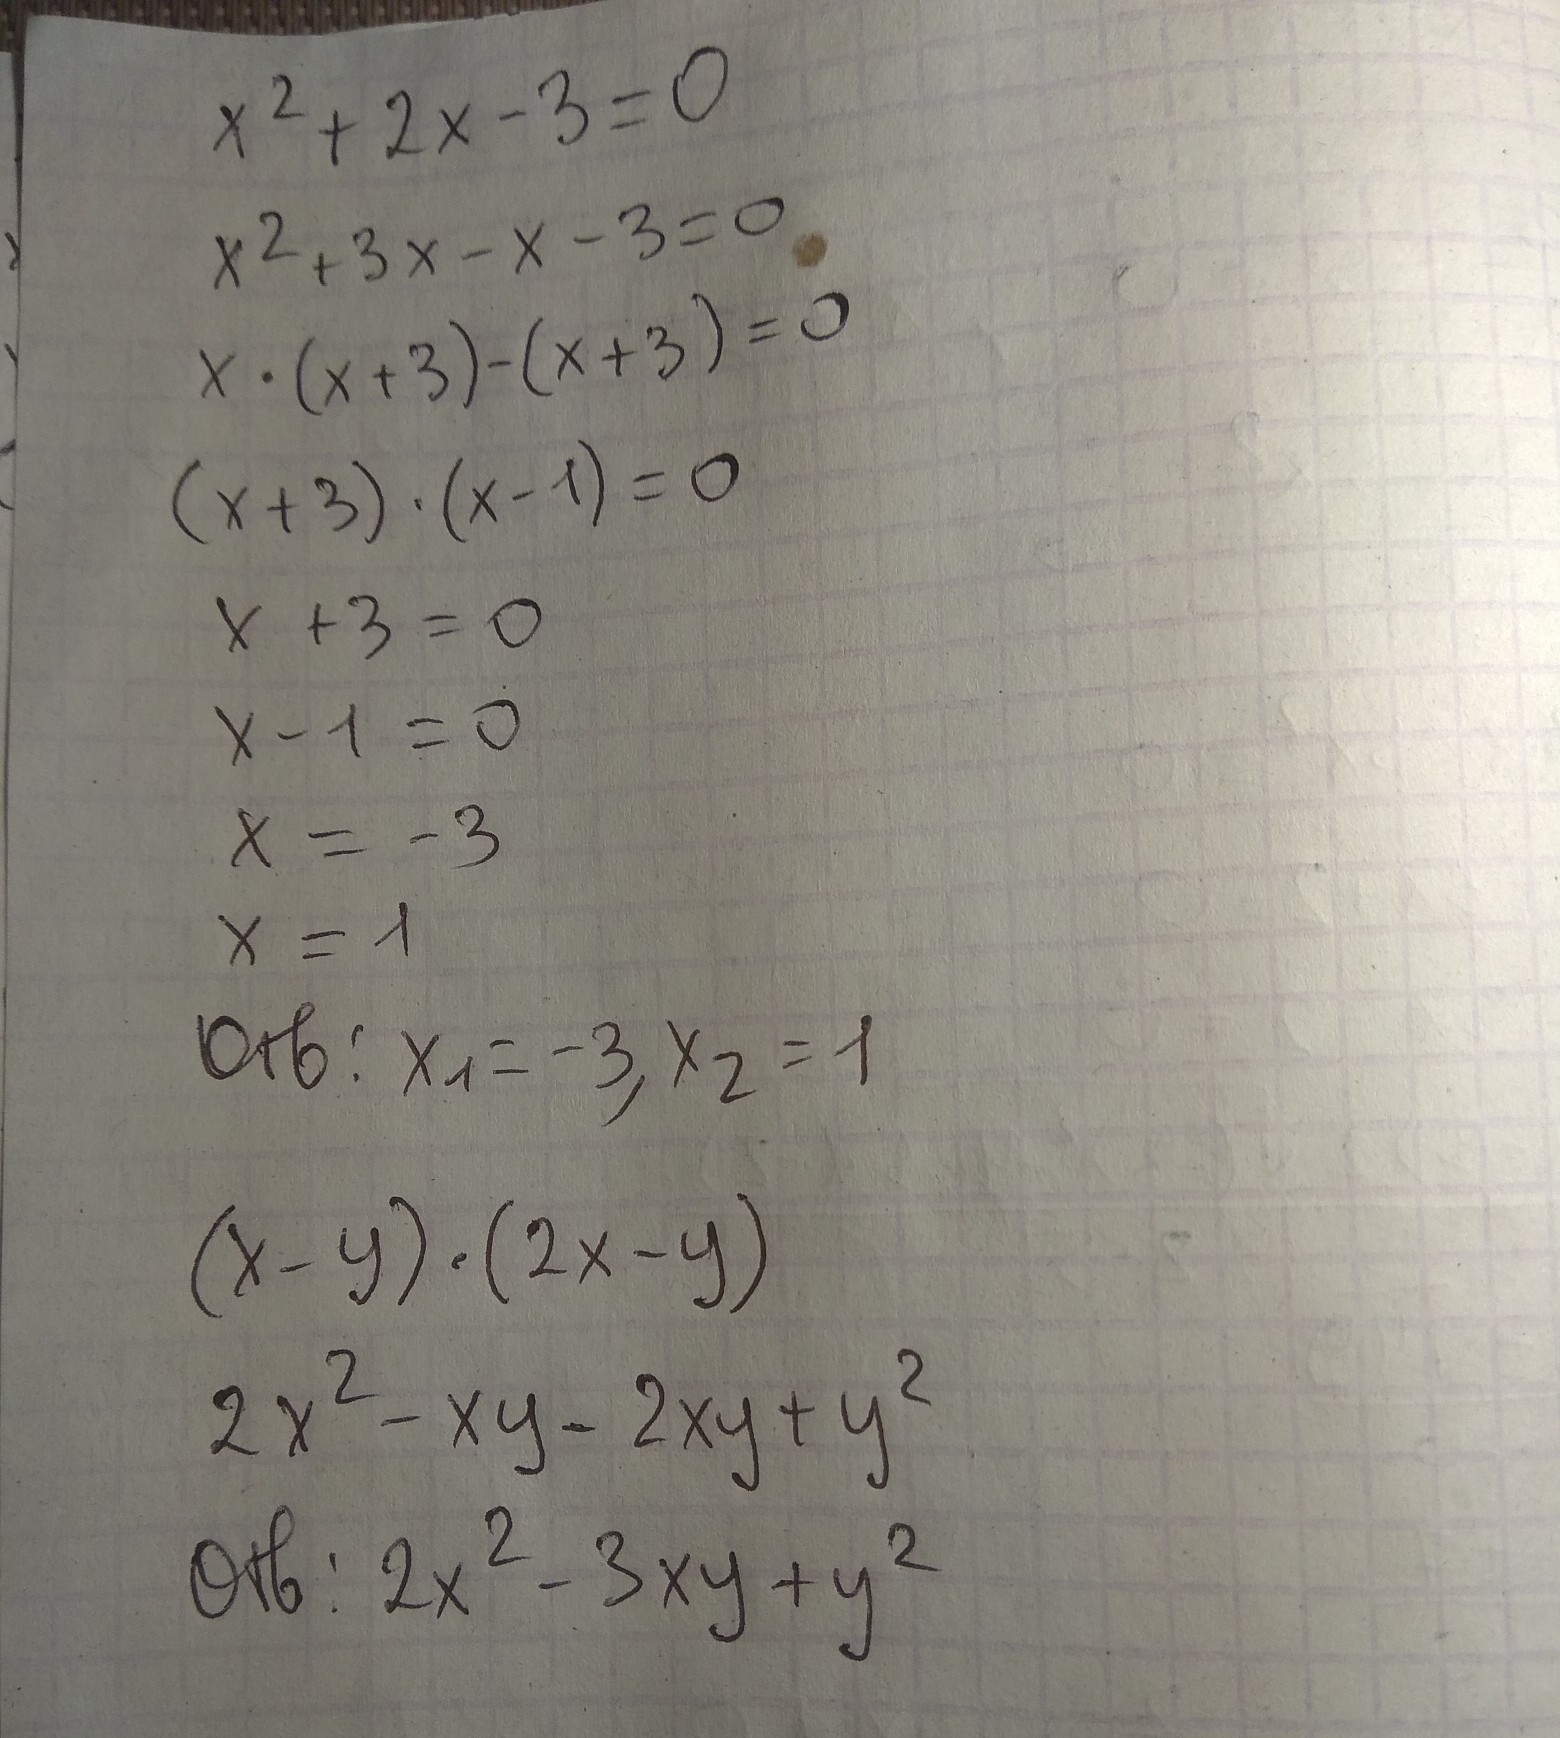 x² + 2x - 3 = 0
x² + 3x - x - 3 = 0
x · (x + 3) - (x + 3) = 0
(x + 3) · (x - 1) = 0
x + 3 = 0
x - 1 = 0
x = -3
x = 1
Отв: x₁ = -3, x₂ = 1
(x - y) · (2x - y)
2x² - xy - 2xy + y²
Отв: 2x² - 3xy + y²